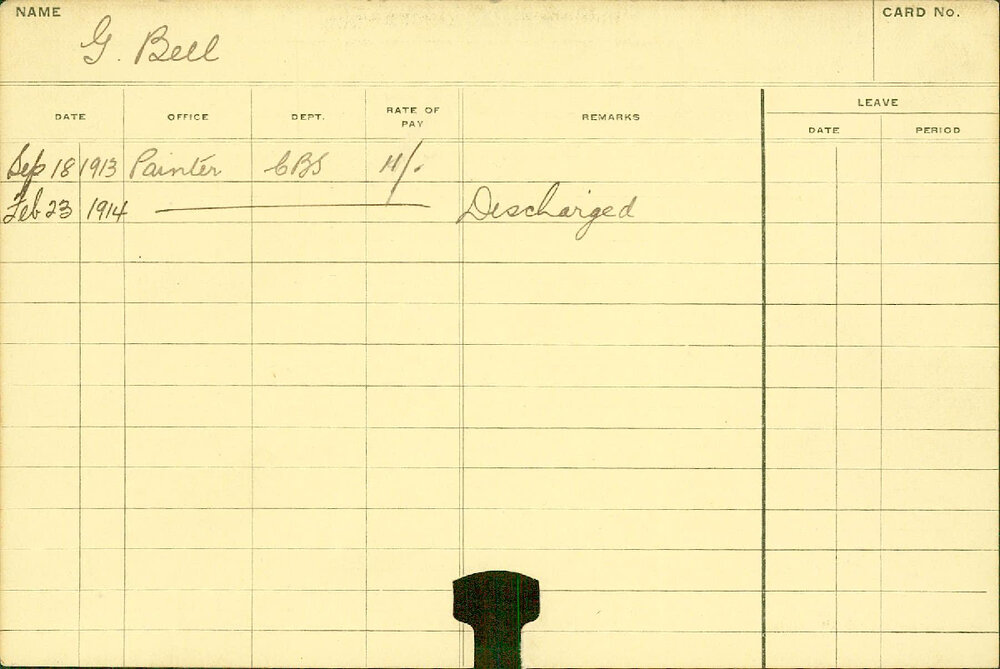 NAME
CARD No.
G. Bell
LEAVE
DATE OFFICE DEPT. RATE OF PAY REMARKS DATE PERIOD
Sep 18 1913 Painter CBS 11/.
Feb 23 1914 Discharged